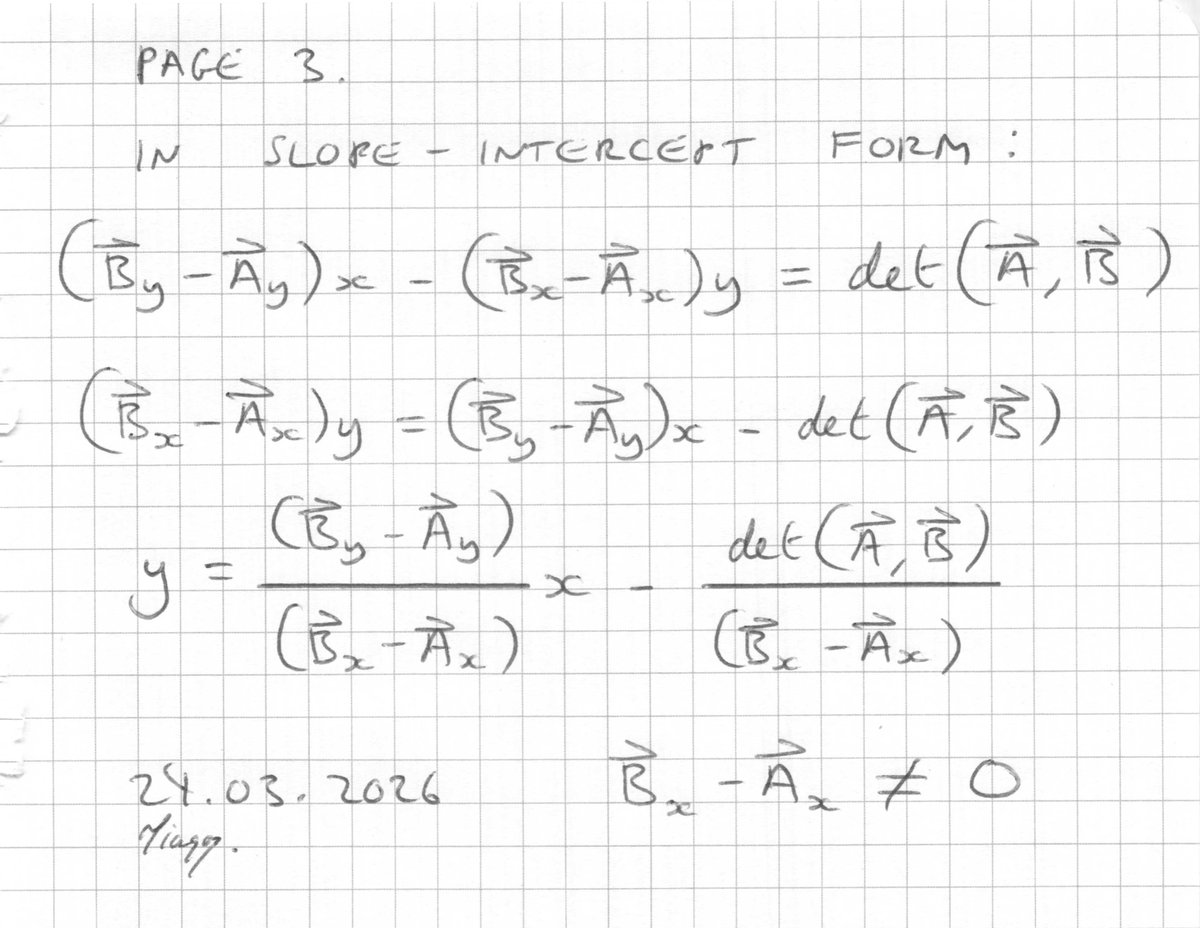 PAGE 3.
IN SLOPE - INTERCEPT FORM :
(B⃗y - A⃗y)x - (B⃗x - A⃗x)y = det(A⃗, B⃗)
(B⃗x - A⃗x)y = (B⃗y - A⃗y)x - det(A⃗, B⃗)
y = (B⃗y - A⃗y)/(B⃗x - A⃗x) x - det(A⃗, B⃗)/(B⃗x - A⃗x)
24.03.2026 B⃗x - A⃗x ≠ 0